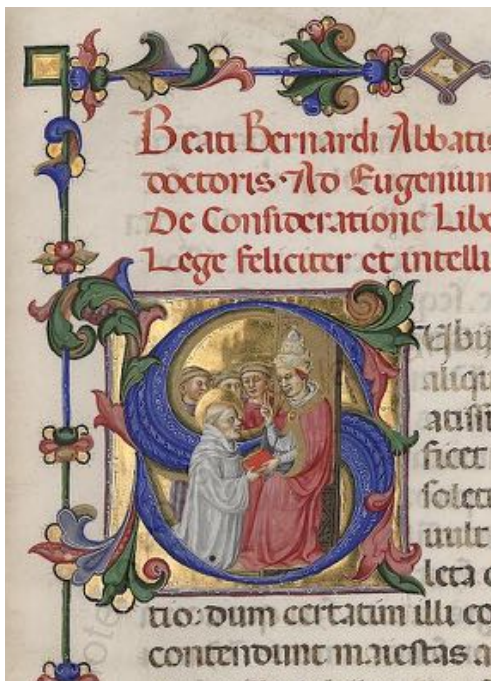 Beati Bernardi Abbatis
doctoris · Ad Eugenium
De Consideratione Libe
Lege feliciter et intelli
S
Ubij
aliqu
atissi
ficet
solet
uult
leta c
tio: dum certatim illi co
contendunt maiestas a